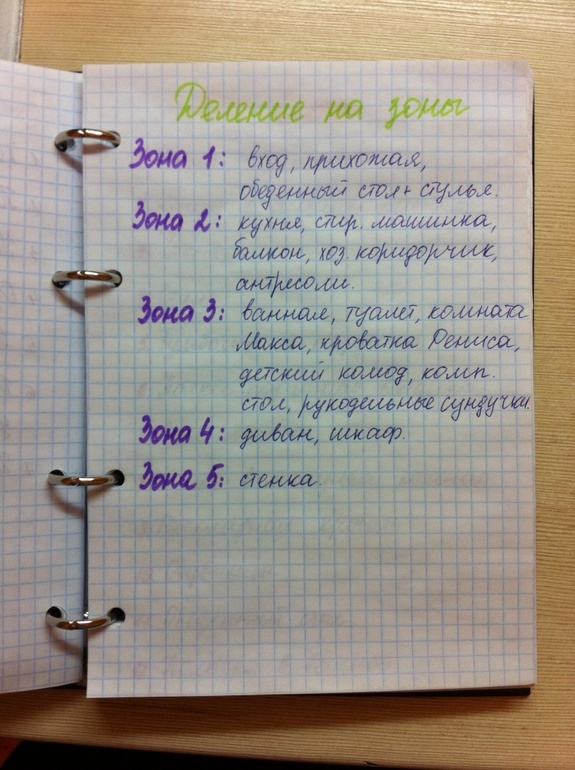 Деление на зоны
Зона 1: вход, прихожая,
обеденный стол + стулья.
Зона 2: кухня, стир. машинка,
балкон, хоз. коридорчик,
антресоли.
Зона 3: ванная, туалет, комната
Макса, кроватка Дениса,
детский комод, комп.
стол, рукодельные сундучки.
Зона 4: диван, шкаф.
Зона 5: стенка.